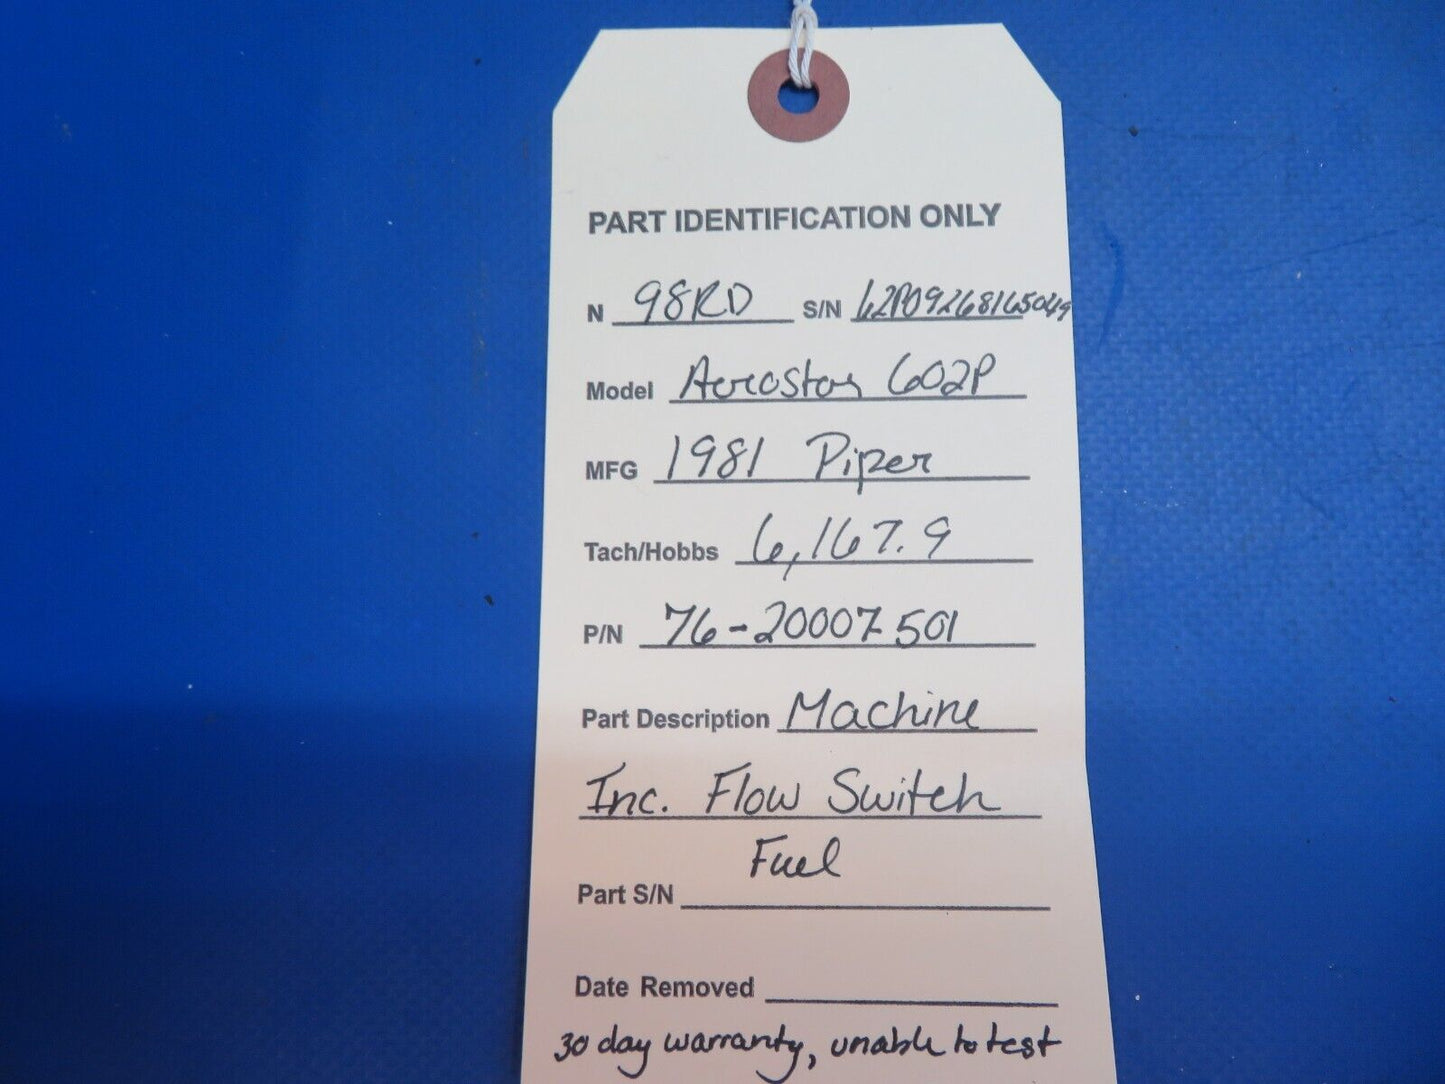 PART IDENTIFICATION ONLY
N 98RD S/N 62P09268165049
Model Aerostar 602P
MFG 1981 Piper
Tach/Hobbs 6,167.9
P/N 76-20007 501
Part Description Machine
Inc. Flow Switch
Fuel
Part S/N
Date Removed
30 day warranty, unable to test